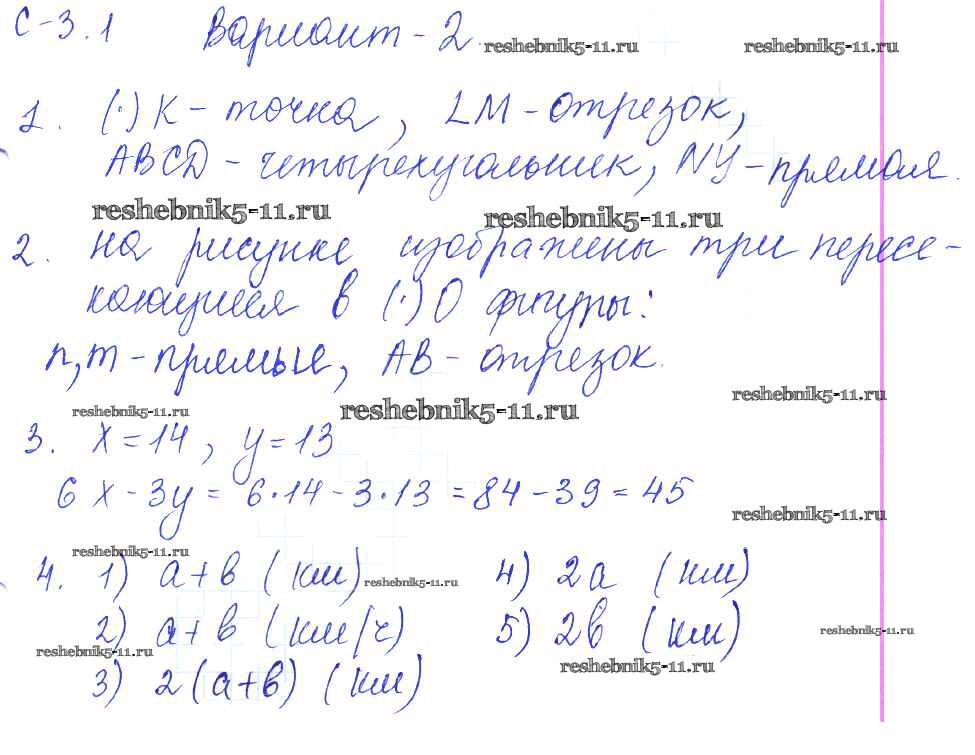 С-3.1 Вариант-2 reshebnik5-11.ru reshebnik5-11.ru
1. (·)K - точка, LM - отрезок,
ABCD - четырехугольник, NY - прямая.
reshebnik5-11.ru reshebnik5-11.ru
2. На рисунке изображены три пересе-
кающиеся в (·)O фигуры:
n, m - прямые, AB - отрезок.
reshebnik5-11.ru reshebnik5-11.ru reshebnik5-11.ru
3. x = 14, y = 13
6x - 3y = 6·14 - 3·13 = 84 - 39 = 45
reshebnik5-11.ru
reshebnik5-11.ru
4. 1) a + b (км) reshebnik5-11.ru 4) 2a (км)
2) a + b (км/ч) 5) 2b (км) reshebnik5-11.ru
reshebnik5-11.ru reshebnik5-11.ru
3) 2(a + b) (км)